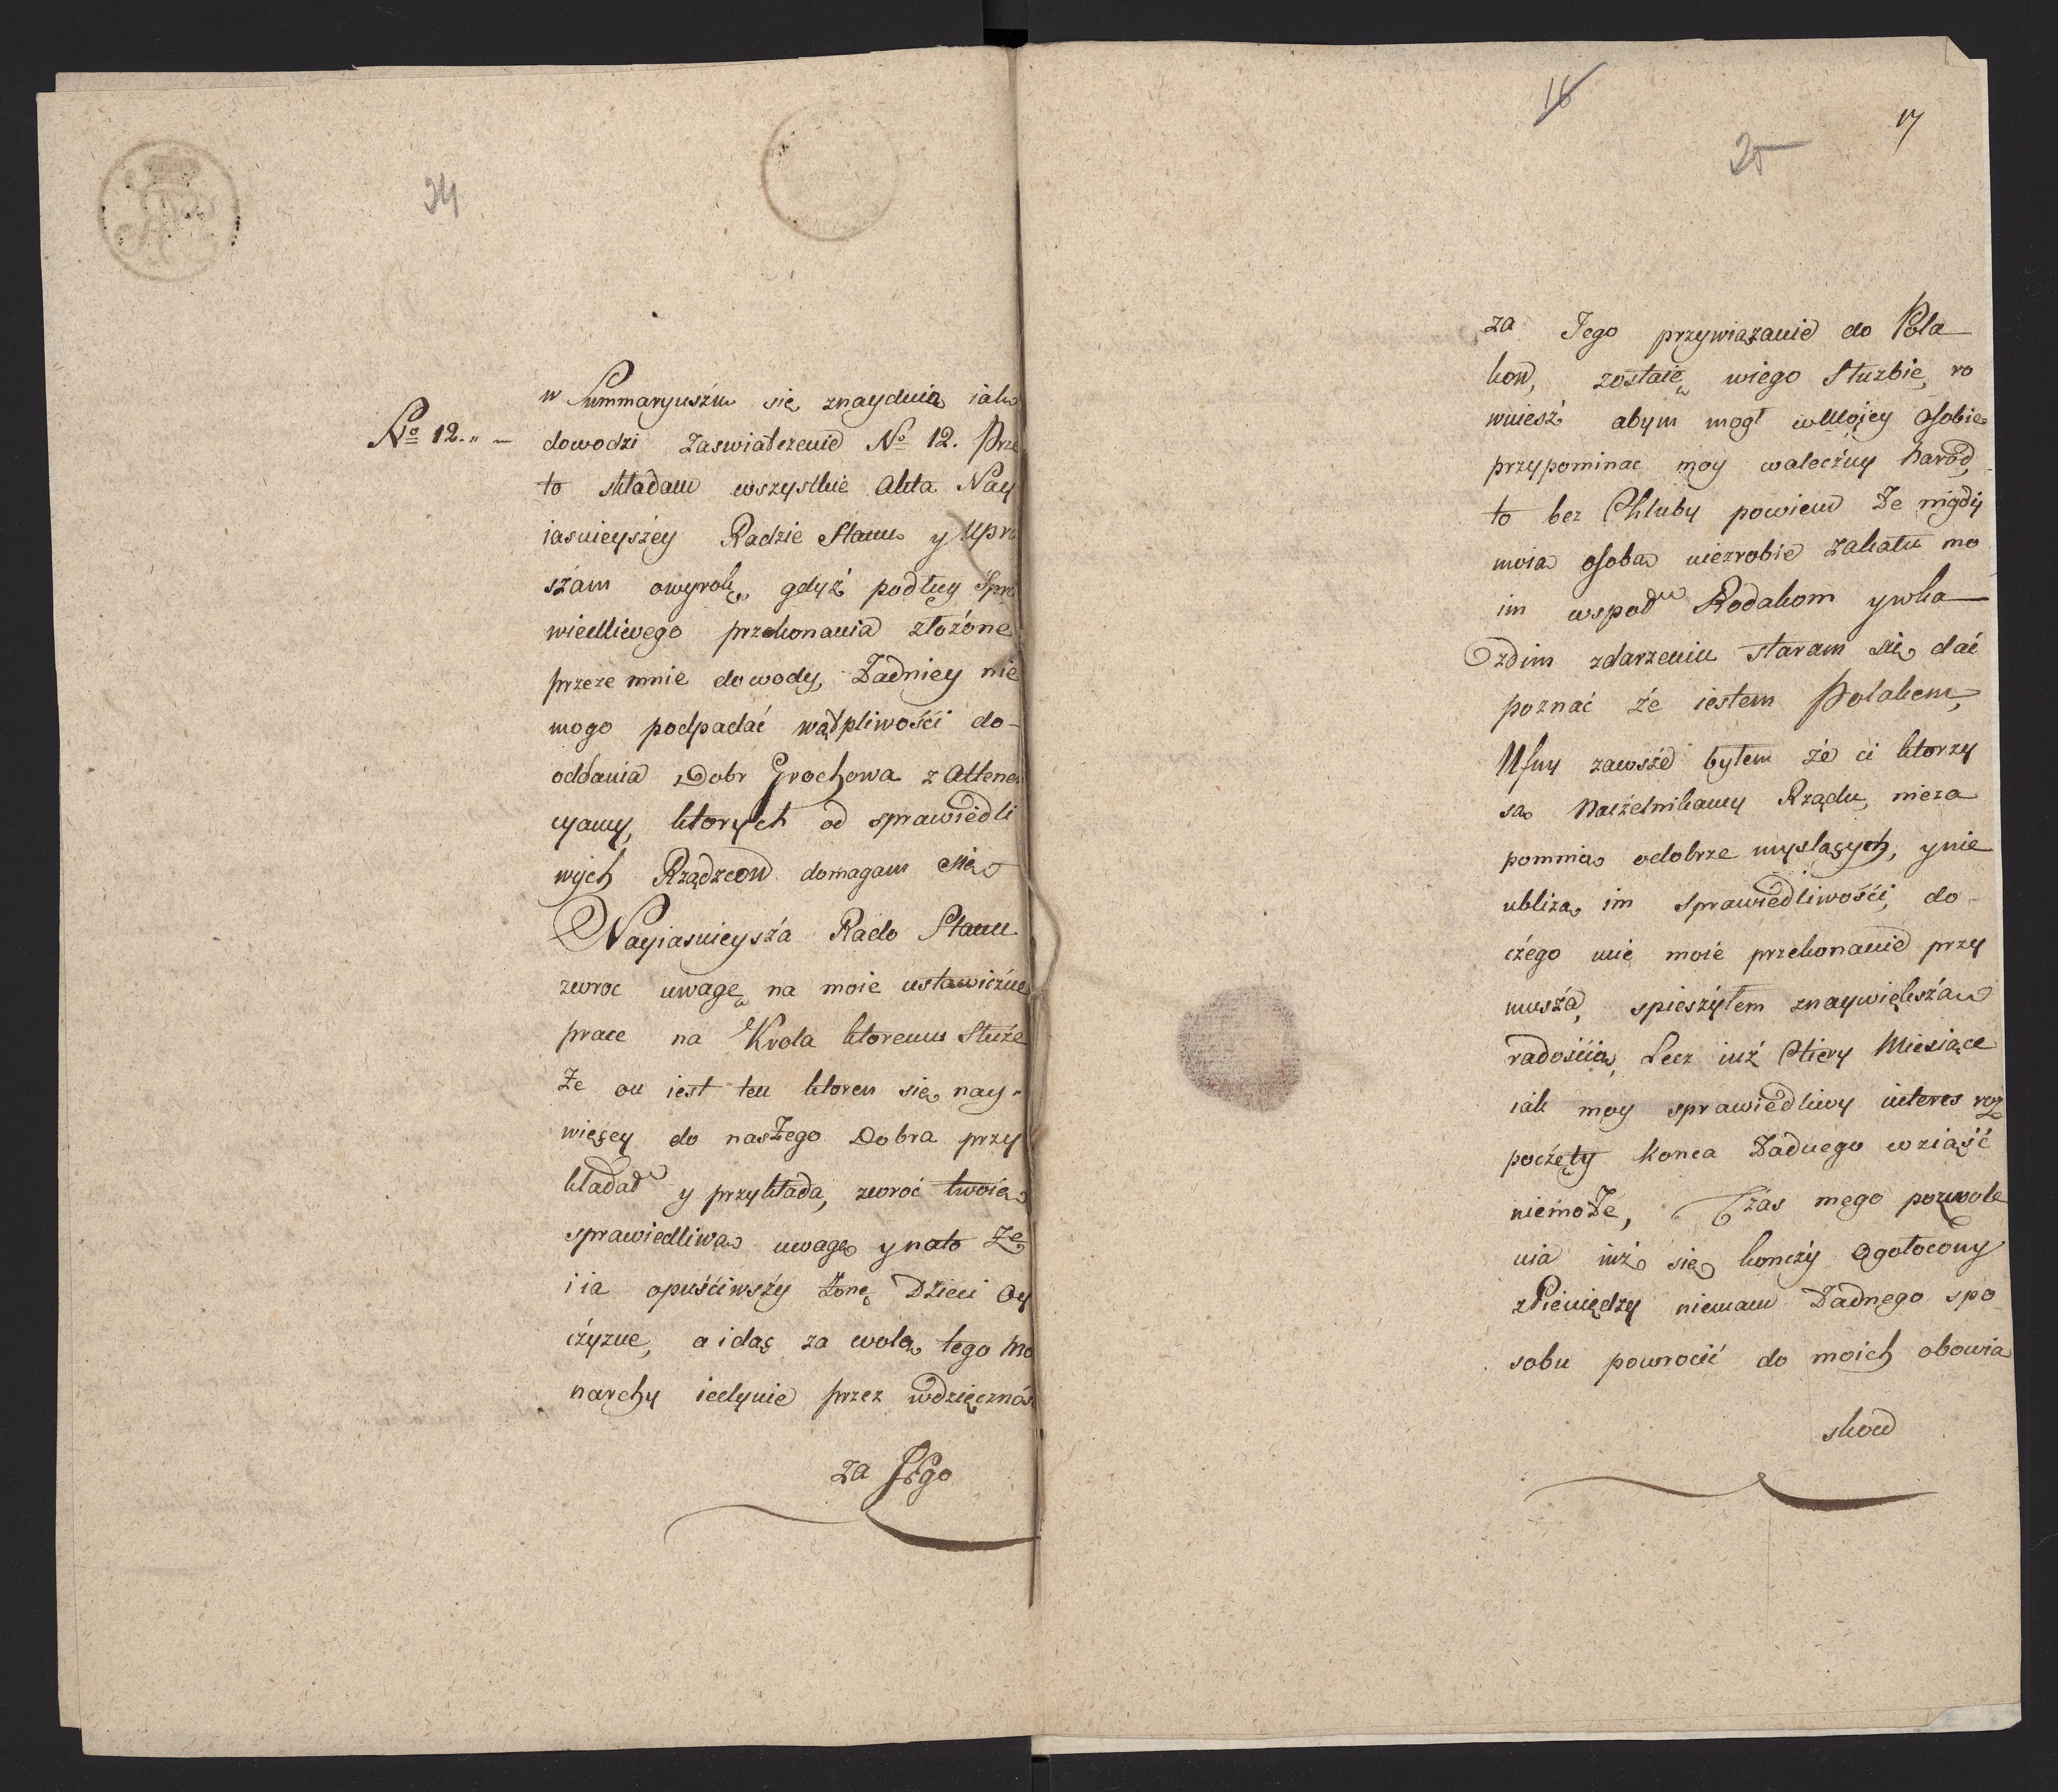 24
w Summaryuszu się znayduią iako
No 12. „ –
dowodzi Zaswiatczenie No 12. Prze
to składam wszystkie Akta Nay
iasnieyszéy Radzie Stanu y Upra
szam owyrok, gdyż podług Spra
wiedliwego przekonania złożone
przeze mnie dowody, Żadniey nie
mogo podpadać wątpliwośći do-
oddania Dobr Grochowa z Attenen
cyamy, ktorych od sprawiedli
wych Rządzcow domagam się
Nayiasnieysza Rado Stanu
zwroc uwagę na moie ustawiczne
prace na Krola ktoremu Służe
Że on iest ten ktoren się nay-
więcey do naszego Dobra przy
kładał y przykłada, zwroć twoią
sprawiedliwą uwagę y nato Że
i ia opuśćiwszy żonę Dzieci Oy
czyzne, a idąc za wolą tego Mo
narchy iedynie przez wdzięcznoś
za Jego
16
25
17
za Jego przywiązanie do Pola
kow, zostaię wiego Służbie, ro
wniesz abym mogł w Mojey Osobie
przypominac moy waleczny Narod,
to bez Chluby powiem Że nigdy
moia osoba niezrobie zakału mo
im wspoł Rodakom y wka
zdim zdarzeniu staram się dać
poznać że iestem Polakem,
Ufny zawsze byłem że ci ktorzy
są Naczelnikamy Rządu, nieza
pomnią odobrze myslących, y nie
ubliżą im sprawiedliwośći, do-
czego mie moie przekonanie przy
musza, spieszyłem znaywiększą
radośćią, Lecz iuż Cztery Miesiące
iak moy sprawiedliwy interes roz
poczęty Konca Żadnego wziąść
niemoże, Czas mego pozwole
nia iuż się konczy Ogołocony
z Pieniędzy niemam Żadnego spo
sobu powrocić do moich obowia
skow